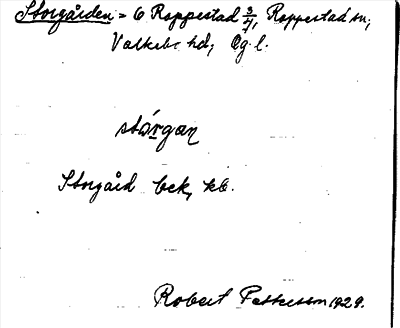 Storgården = 6 Rappestad 3/4, Rappestad sn,
Valkebo hd, Ög. l.
stórgan
Storgård bek, kb.
Robert Pettersson 1929.